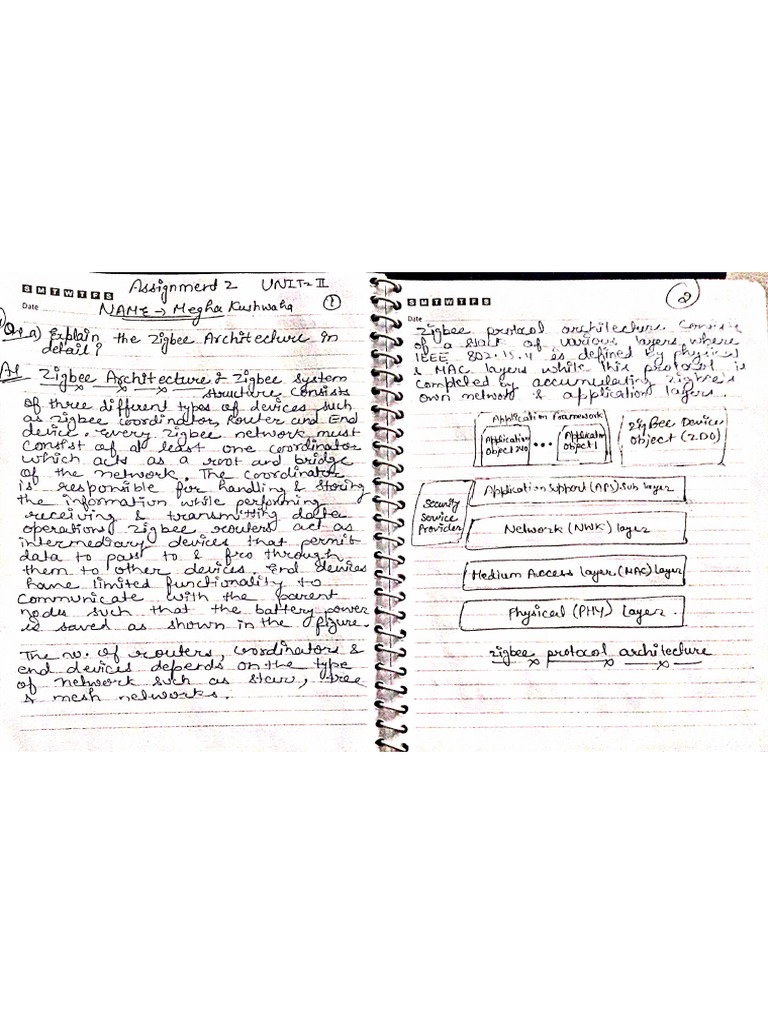 S M T W T F S
Assignment 2 UNIT-II
Date
NAME → Megha Kushwaha
①
Que a) Explain the Zigbee Architecture in
detail?
Zigbee Architecture: Zigbee system
structure consists
of three different types of devices such
as Zigbee coordinator, Router and End
device. Every Zigbee network must
consist of at least one coordinator
which acts as a root and bridge
of the network. The coordinator
is responsible for handling & storing
the information while performing
receiving & transmitting data
operations. Zigbee routers act as
intermediary devices that permit
data to pass to & fro through
them to other devices. End devices
have limited functionality to
communicate with the parent
nodes such that the battery power
is saved as shown in the figure.
The no. of routers, coordinators &
end devices depends on the type
of network such as star, tree
& mesh networks.
S M T W T F S
②
Date
Zigbee protocol architecture consists
of a stack of various layers where
IEEE 802.15.4 is defined by physical
& MAC layers while this protocol is
completed by accumulating Zigbee's
own network & application layers.
Application Framework
Application
Object
...
Application
Object 1
ZigBee Device
Object (ZDO)
Application Support (APS) Sub layer
Security
Service
Provider
Network (NWK) layer
Medium Access Layer (MAC) layer
Physical (PHY) Layer.
zigbee protocol architecture